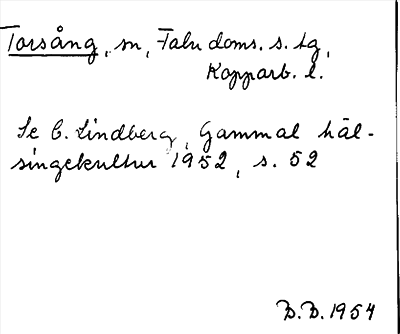 Torsång, sn, Falu doms. s. tg,
Kopparb. l.
Se C. Lindberg, Gammal häl-
singekultur 1952, s. 52
B.B. 1954